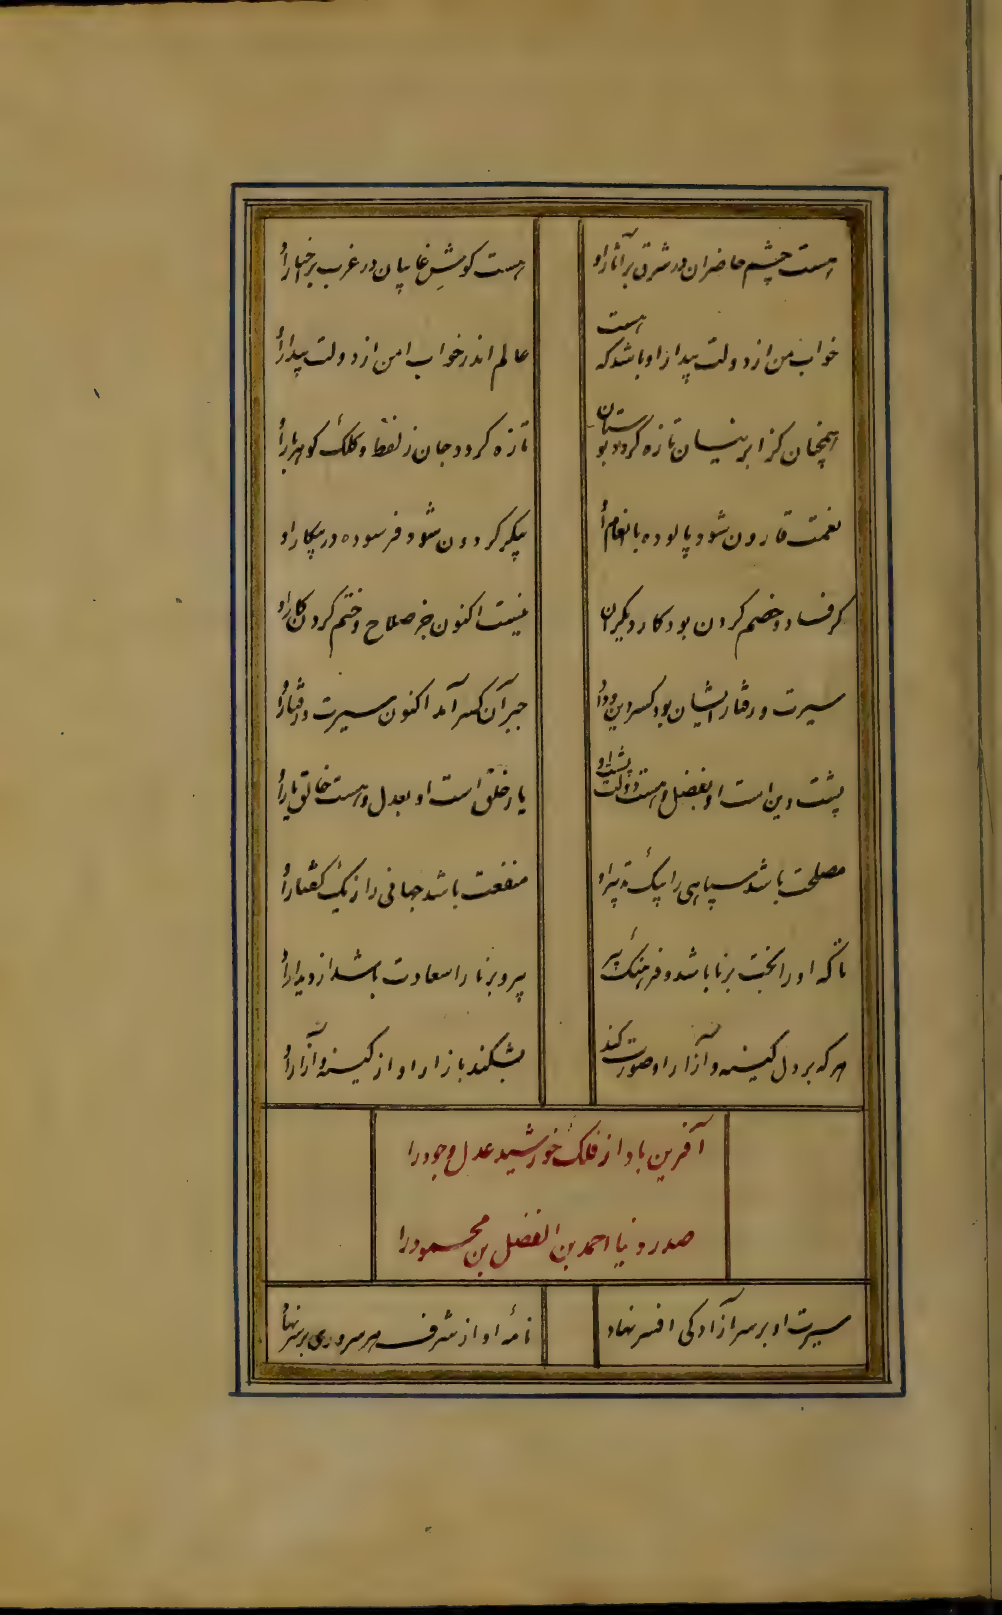 هست چشم حاضران در شرق بر آثار او
هست کوش غایبان در غرب بر اخبار او
خواب من از دولت بیدار او باشد که هست
عالم اندر خواب امن از دولت بیدار او
همچنان کز ابر نیسان تازه کردد بوستان
تازه کردد جان ز لفظ و کلک کوهربار او
نعمت قارون شود پالوده با انعام او
پیکر کردون شود فرسوده در پیکار او
کر فساد و خصم کردن بود کار دیکران
نیست اکنون جز صلاح و ختم کردن کار او
سیرت و رفتار ایشان بود کسر دین و داد
جبر آن کسر آمد اکنون سیرت و رفتار او
پشت دین است او بفضل و هست دولت پشت او
یار خلق است او بعدل و هست خالق یار او
مصلحت باشد سپاهی را بیک تدبیر او
منفعت باشد جهانی را ز یک کفتار او
تا که او را بخت برنا باشد و فرهنک پیر
پیر و برنا را سعادت باشد از دیدار او
هر که بر دل کینه و آزار او صورت کند
بشکند بازار او از کینه و آزار او
آفرین باد از فلک خورشید عدل و جود را
صدر دنیا احمد بن الفضل بن محمود را
سیرت او بر سر آزادکی افسر نهاد
نامهٔ او از شرف مهر سروری بر سر نهاد